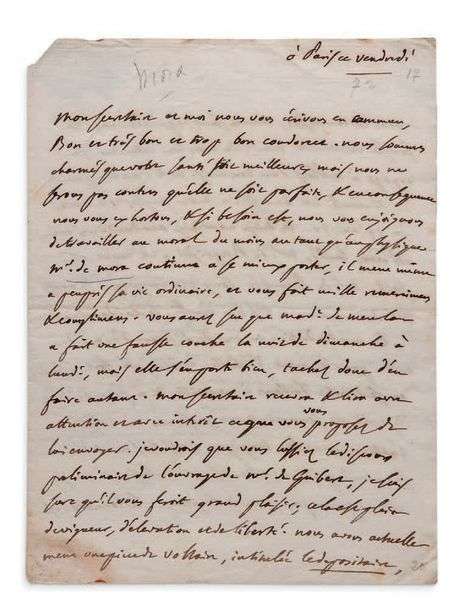 à Paris ce vendredi
Mora
22
17
mon secretaire et moi nous vous écrivons en commun,
Bon et très bon et trop bon condorcet. nous sommes
charmés que votre santé soit meilleure, mais nous ne
serons pas contens qu'elle ne soit parfaite, & en consequence
nous vous exhortons, & si besoin est, nous vous enjoignons
de travailler au moral du moins autant qu'au physique
Mr. de mora continue à se mieux porter, il mene même
a peu près sa vie ordinaire, et vous fait mille remercimens
& complimens. vous aurez su que made. de meulan
a fait une fausse couche la nuit de dimanche à
lundi, mais elle s'en porte bien, tachez donc d'en
faire autant. mon secretaire recevra & lira avec
attention et avec interêt ce que vous proposez de
lui envoyer. je voudrois que vous lussiez le discours
preliminaire de l'ouvrage de Mr. de Guibert, je suis
sure qu'il vous feroit grand plaisir; cela est plein
de vigueur, d'elevation et de liberté. nous avons actuelle
ment une piece de voltaire, intitulée le depositaire,